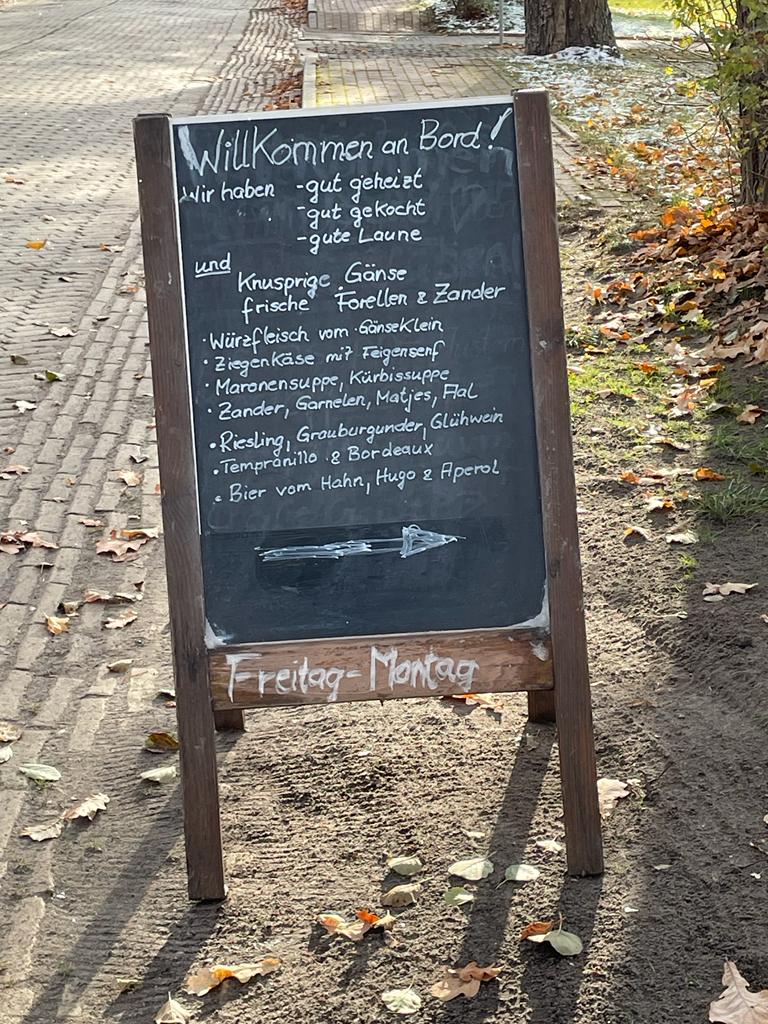 Willkommen an Bord!
Wir haben - gut geheizt
- gut gekocht
- gute Laune
und
Knusprige Gänse
frische Forellen & Zander
· Würzfleisch vom Gänseklein
· Ziegenkäse mit Feigensenf
· Maronensuppe, Kürbissuppe
· Zander, Garnelen, Matjes, Aal
· Riesling, Grauburgunder, Glühwein
· Tempranillo & Bordeaux
· Bier vom Hahn, Hugo & Aperol
Freitag-Montag